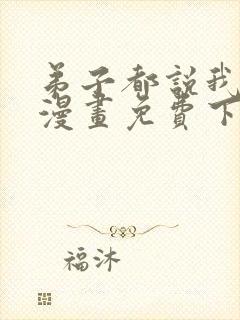 弟子都說我
漫畫免費下
福沐